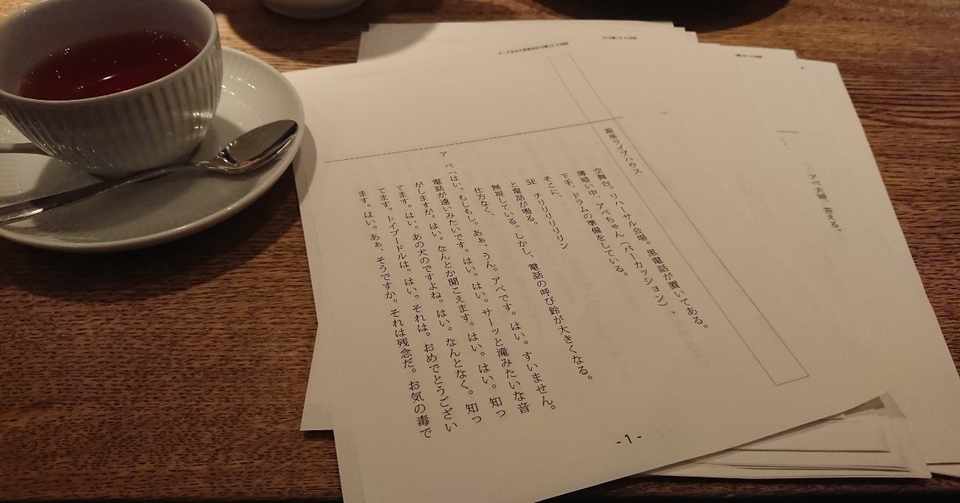 最後のライブハウス
空舞台。リハーサル会場。黒電話が置いてある。
薄暗い中、アベちゃん(パーカッション)、
下手、ドラムの準備をしている。
そこに、
SE チリリリリリリン
と電話が鳴る。
無視している。しかし、電話の呼び鈴が大きくなる。
仕方なく、
アベ「はい。もしもし。ああ、うん。アベです。はい。すいません。
電話が遠いみたいです。はい。はい。サーッと滝みたいな音
がしますが、はい。なんとか聞こえます。はい。はい。知っ
てます。はい。あの犬のですよね。はい。なんとなく。知っ
てます。トイプードルは。はい。それは。おめでとうござい
ます。はい。ああ、そうですか。それは残念だ。お気の毒で
- 1 -
アベ夫婦、答える。